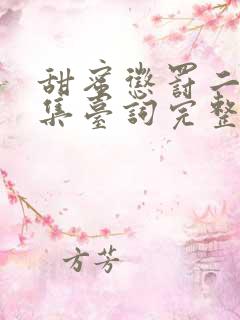 甜蜜懲罰二
集臺詞完整
方芳